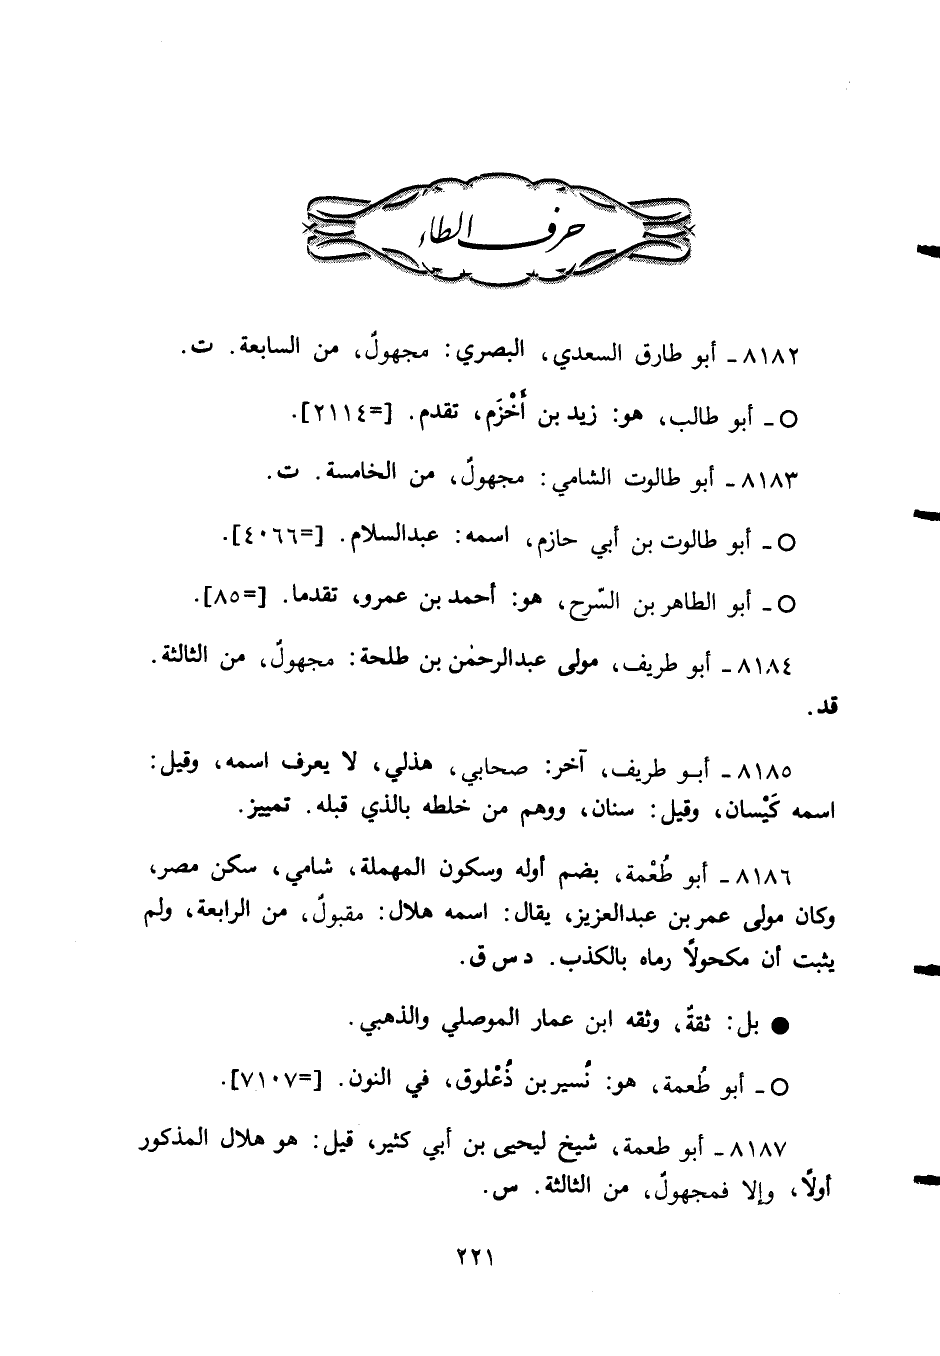 حرف الطاء
٨١٨٢ - أبو طارق السعدي، البصري: مجهولٌ، من السابعة. ت.
○ - أبو طالب، هو: زيد بن أَخْزَم، تقدم. [=٢١١٤].
٨١٨٣ - أبو طالوت الشامي: مجهولٌ، من الخامسة. ت.
○ - أبو طالوت بن أبي حازم، اسمه: عبدالسلام. [=٤٠٦٦].
○ - أبو الطاهر بن السّرح، هو: أحمد بن عمرو، تقدما. [=٨٥].
٨١٨٤ - أبو طريف، مولى عبدالرحمٰن بن طلحة: مجهولٌ، من الثالثة.
قد.
٨١٨٥ - أبـو طريف، آخر: صحابي، هذلي، لا يعرف اسمه، وقيل:
اسمه كَيْسان، وقيل: سنان، ووهم من خلطه بالذي قبله. تمييز.
٨١٨٦ - أبو طُعْمة، بضم أوله وسكون المهملة، شامي، سكن مصر،
وكان مولى عمر بن عبدالعزيز، يقال: اسمه هلال: مقبولٌ، من الرابعة، ولم
يثبت أن مكحولاً رماه بالكذب. د س ق.
● بل: ثقةٌ، وثقه ابن عمار الموصلي والذهبي.
○ - أبو طُعمة، هو: نُسير بن ذُعْلوق، في النون. [=٧١٠٧].
٨١٨٧ - أبو طعمة، شيخ ليحيى بن أبي كثير، قيل: هو هلال المذكور
أولاً، وإلا فمجهولٌ، من الثالثة. س.
٢٢١